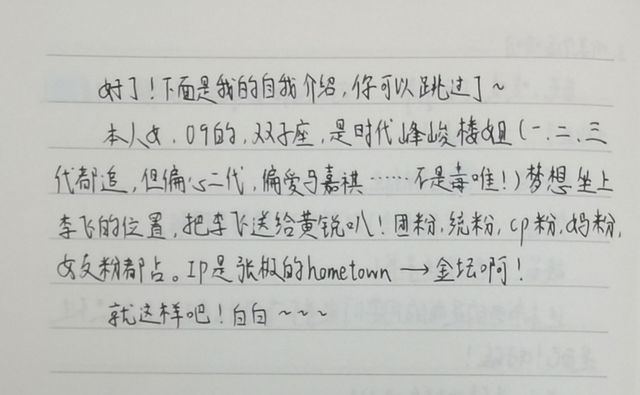 好了！下面是我的自我介绍，你可以跳过了～
本人女，09的，双子座，是时代峰峻楼姐（一、二、三
代都追，但偏心二代，偏爱马嘉祺……不是毒唯！）梦想坐上
李飞的位置，把李飞送给黄锐叭！团粉，统粉，cp粉，妈粉，
女友粉都占。IP是张极的hometown → 金坛啊！
就这样吧！白白～～～